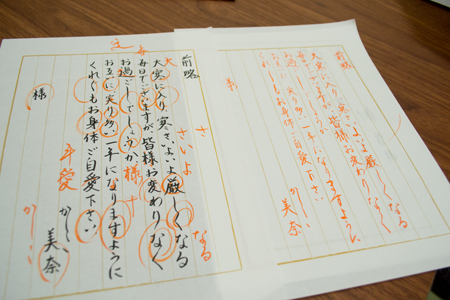 前略
大寒に入り寒さいよいよ厳しくなる
毎日でございますが皆様お変わりなく
お過ごしでしょうか
お互いに実り多い一年になりますように
くれぐれもお身体ご自愛下さい
かしこ
美奈
さいよ
なる
前略
大寒に入り寒さいよいよ厳しくなる
毎日でございますが皆様お変わりなく
お過ごしでしょうか
様
お互いに実り多い一年になりますように
くれぐれもお身体ご自愛下さい
かしこ
美奈
様